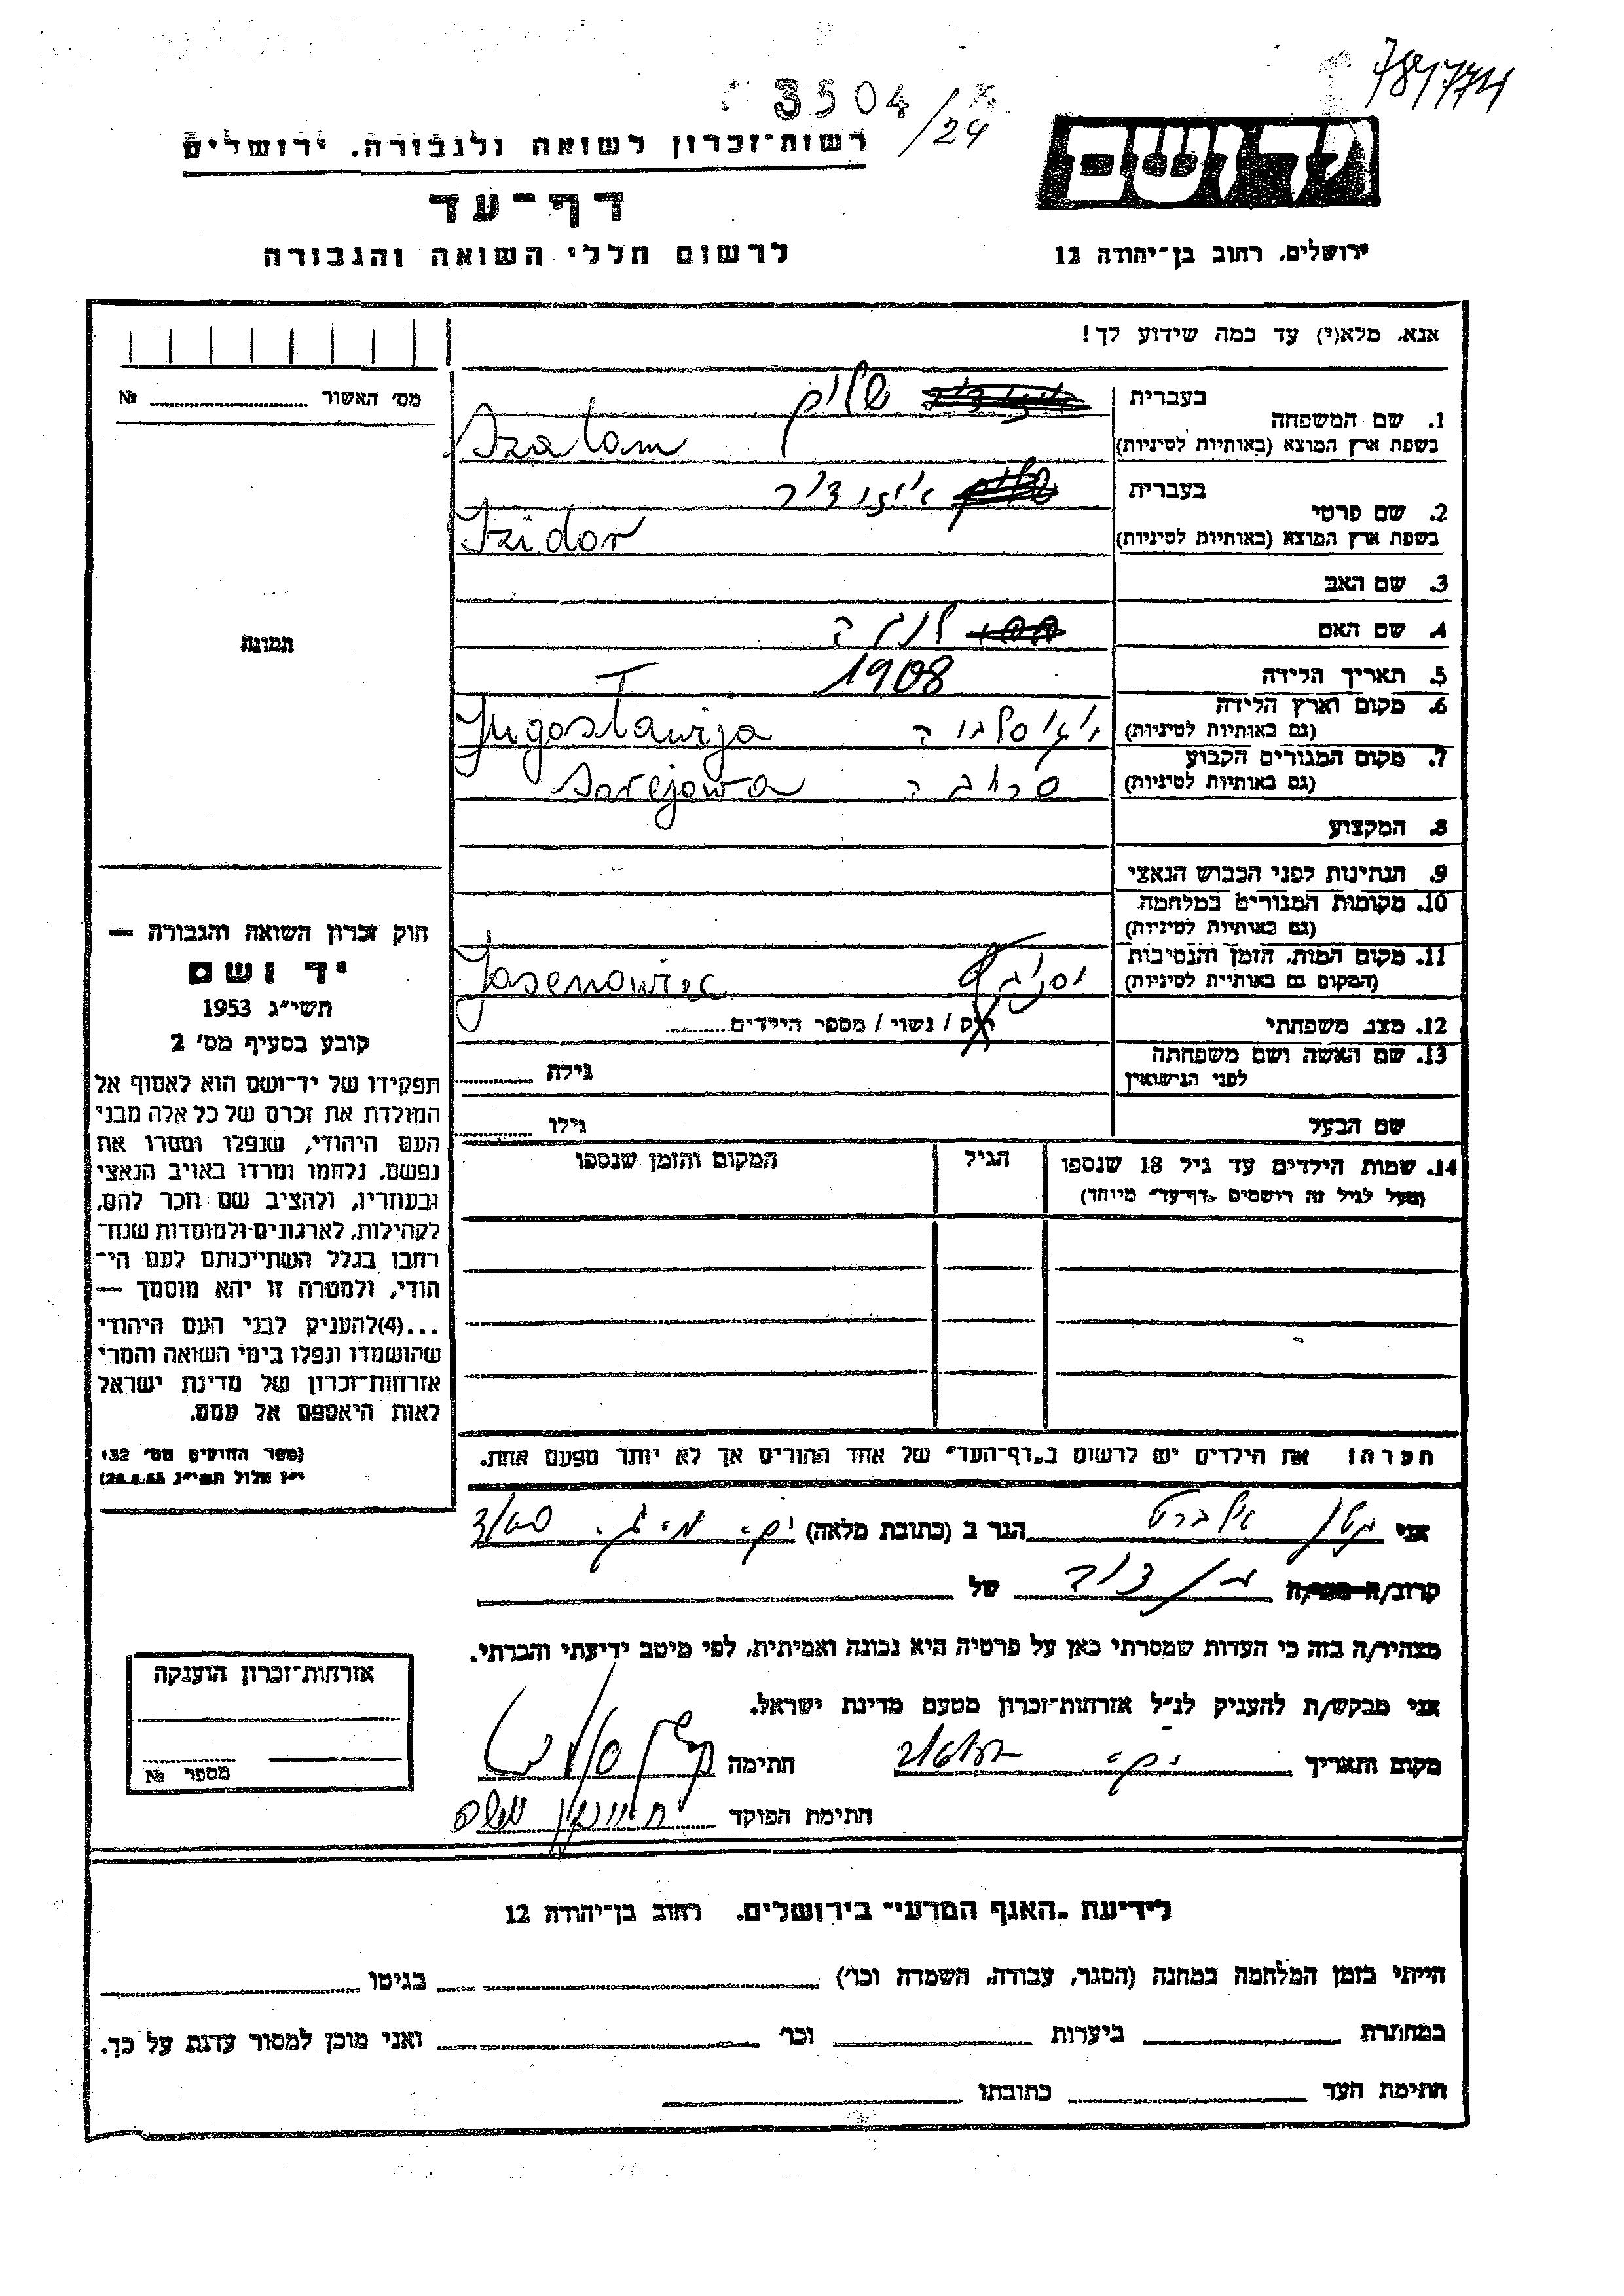 781774
3504/24
רשות־זכרון לשואה ולגבורה, ירושלים
דף־עד
לרשום חללי השואה והגבורה
יד ושם
ירושלים, רחוב בן־יהודה 12
אנא, מלא(י) עד כמה שידוע לך!
מס׳ האשור № 
1. שם המשפחה
בעברית שלום
בשפת ארץ המוצא (באותיות לטיניות) Szalom
2. שם פרטי
בעברית איזידור
בשפת ארץ המוצא (באותיות לטיניות) Izidor
3. שם האב
4. שם האם
5. תאריך הלידה 1908
6. מקום וארץ הלידה
(גם באותיות לטיניות) Jugoslawija
7. מקום המגורים הקבוע
(גם באותיות לטיניות) Sarejewa
8. המקצוע
9. הנתינות לפני הכבוש הנאצי
10. מקומות המגורים במלחמה
(גם באותיות לטיניות)
11. מקום המות, הזמן והנסיבות
(המקום גם באותיות לטיניות) Jasenowiec
12. מצב משפחתי רוק / נשוי / מספר הילדים
13. שם האשה ושם משפחתה
לפני הנישואין גילה
שם הבעל גילו
14. שמות הילדים עד גיל 18 שנספו הגיל המקום והזמן שנספו
(מעל לגיל זה רושמים „דף־עד״ מיוחד)
הערה: את הילדים יש לרשום ב„דף־העד״ של אחד ההורים אך לא יותר מפעם אחת.
תמונה
חוק זכרון השואה והגבורה —
יד ושם
תשי״ג 1953
קובע בסעיף מס׳ 2
תפקידו של יד־ושם הוא לאסוף אל
המולדת את זכרם של כל אלה מבני
העם היהודי, שנפלו ומסרו את
נפשם, נלחמו ומרדו באויב הנאצי
ובעוזריו, ולהציב שם וזכר להם,
לקהילות, לארגונים ולמוסדות שנח־
רבו בגלל השתייכותם לעם הי־
הודי, ולמטרה זו יהא מוסמך —
...(4)להעניק לבני העם היהודי
שהושמדו ונפלו בימי השואה והמרי
אזרחות־זכרון של מדינת ישראל
לאות היאספם אל עמם.
(ספר החוקים מס׳ 132
י״ז אלול תשי״ג 28.8.53)
אני אלברט הגר ב (כתובת מלאה)
קרוב/ה מכר/ה בן דוד של
מצהיר/ה בזה כי העדות שמסרתי כאן על פרטיה היא נכונה ואמיתית, לפי מיטב ידיעתי והכרתי.
אני מבקש/ת להעניק לנ״ל אזרחות־זכרון מטעם מדינת ישראל.
מקום ותאריך חתימה
חתימת הפוקד
אזרחות־זכרון הוענקה
מספר №
לידיעת „האגף המדעי״ בירושלים, רחוב בן־יהודה 12
הייתי בזמן המלחמה במחנה (הסגר, עבודה, השמדה וכו׳) בגיטו
במחתרת ביערות וכו׳ ואני מוכן למסור עדות על כך.
חתימת העד כתובתו